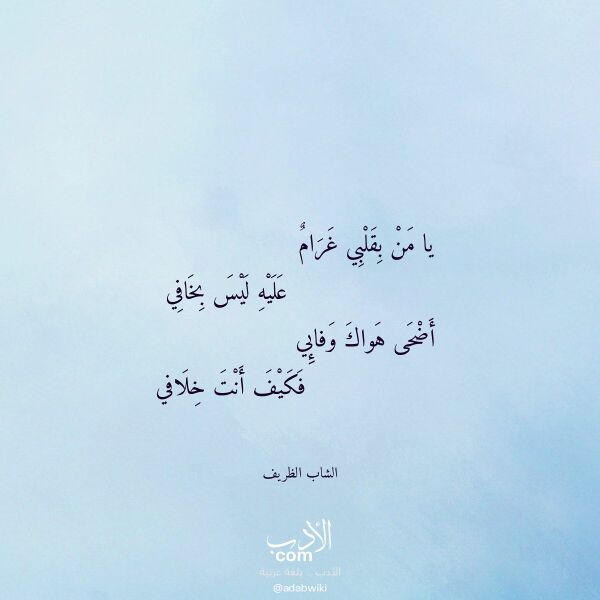 يا مَنْ بِقَلْبِي غَرَامٌ
عَلَيْهِ لَيْسَ بِخَافِي
أَضْحَى هَواكَ وَفائِي
فَكَيْفَ أَنْتَ خِلَافي
الشاب الظريف
الأدب
com
الأدب .. بلغة عربية
@adabwiki